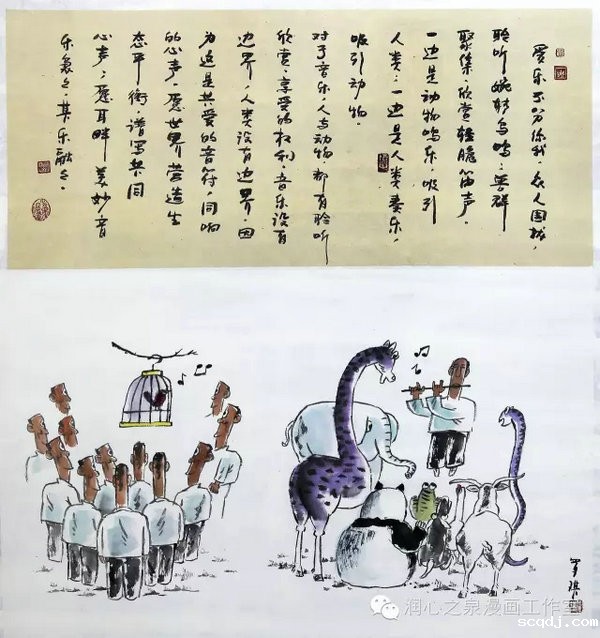 爱乐不分你我，众人围拢，
聆听婉转鸟鸣；兽群
聚集，欣赏轻脆笛声。
一边是动物鸣乐，吸引
人类；一边是人类奏乐，
吸引动物。
对于音乐，人与动物都有聆听
欣赏、享受的权利，音乐没有
边界，人类没有边界，因
为这是共爱的音符，同响
的心声，愿世界营造生
态平衡，谱写共同
心声；愿耳畔美妙音
乐袅々，其乐融々。
润心之泉漫画工作室
scqdj.com